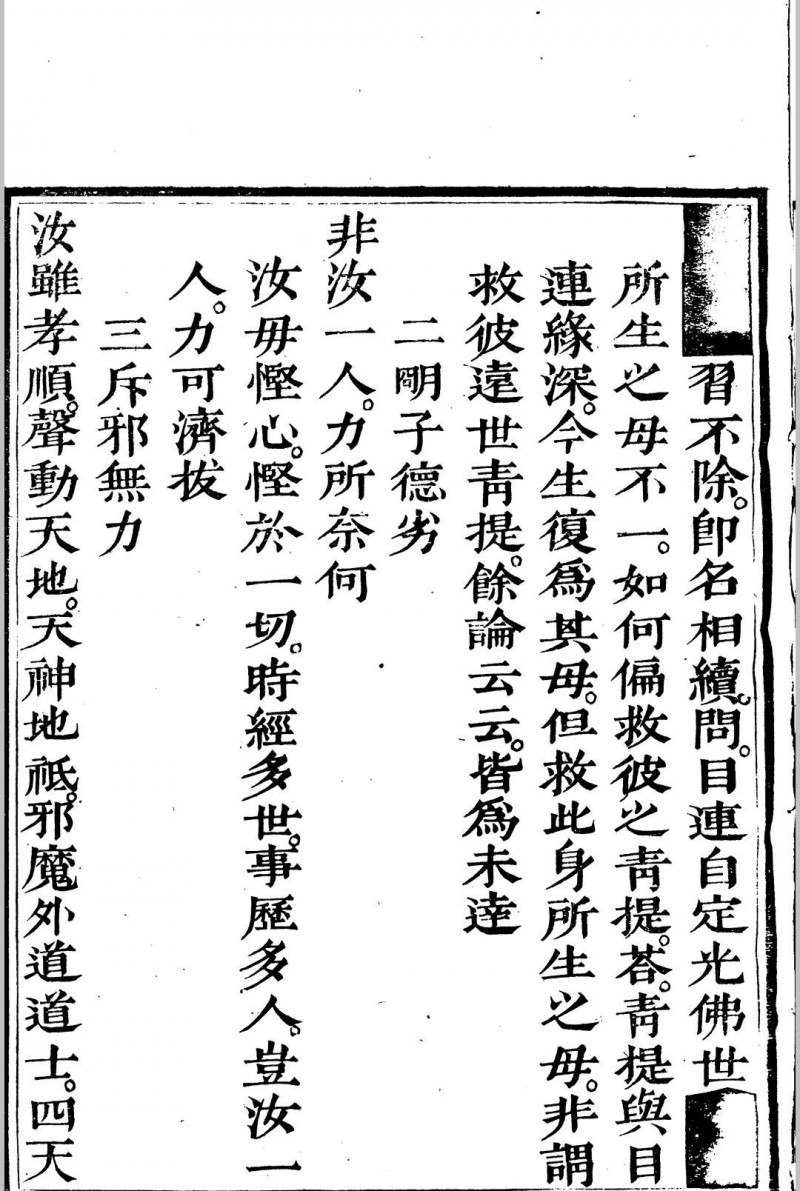 習不除。卽名相續。問。目連自定光佛世
所生之母不一。如何偏救彼之靑提。荅。靑提與目
連緣深。今生復爲其母。但救此身所生之母。非謂
救彼遠世靑提。餘論云云。皆爲未達
二明子德劣
非汝一人。力所奈何
汝母慳心。慳於一切。時經多世。事歷多人。豈汝一
人。力可濟拔
三斥邪無力
汝雖孝順。聲動天地。天神地祇。邪魔外道道士。四天